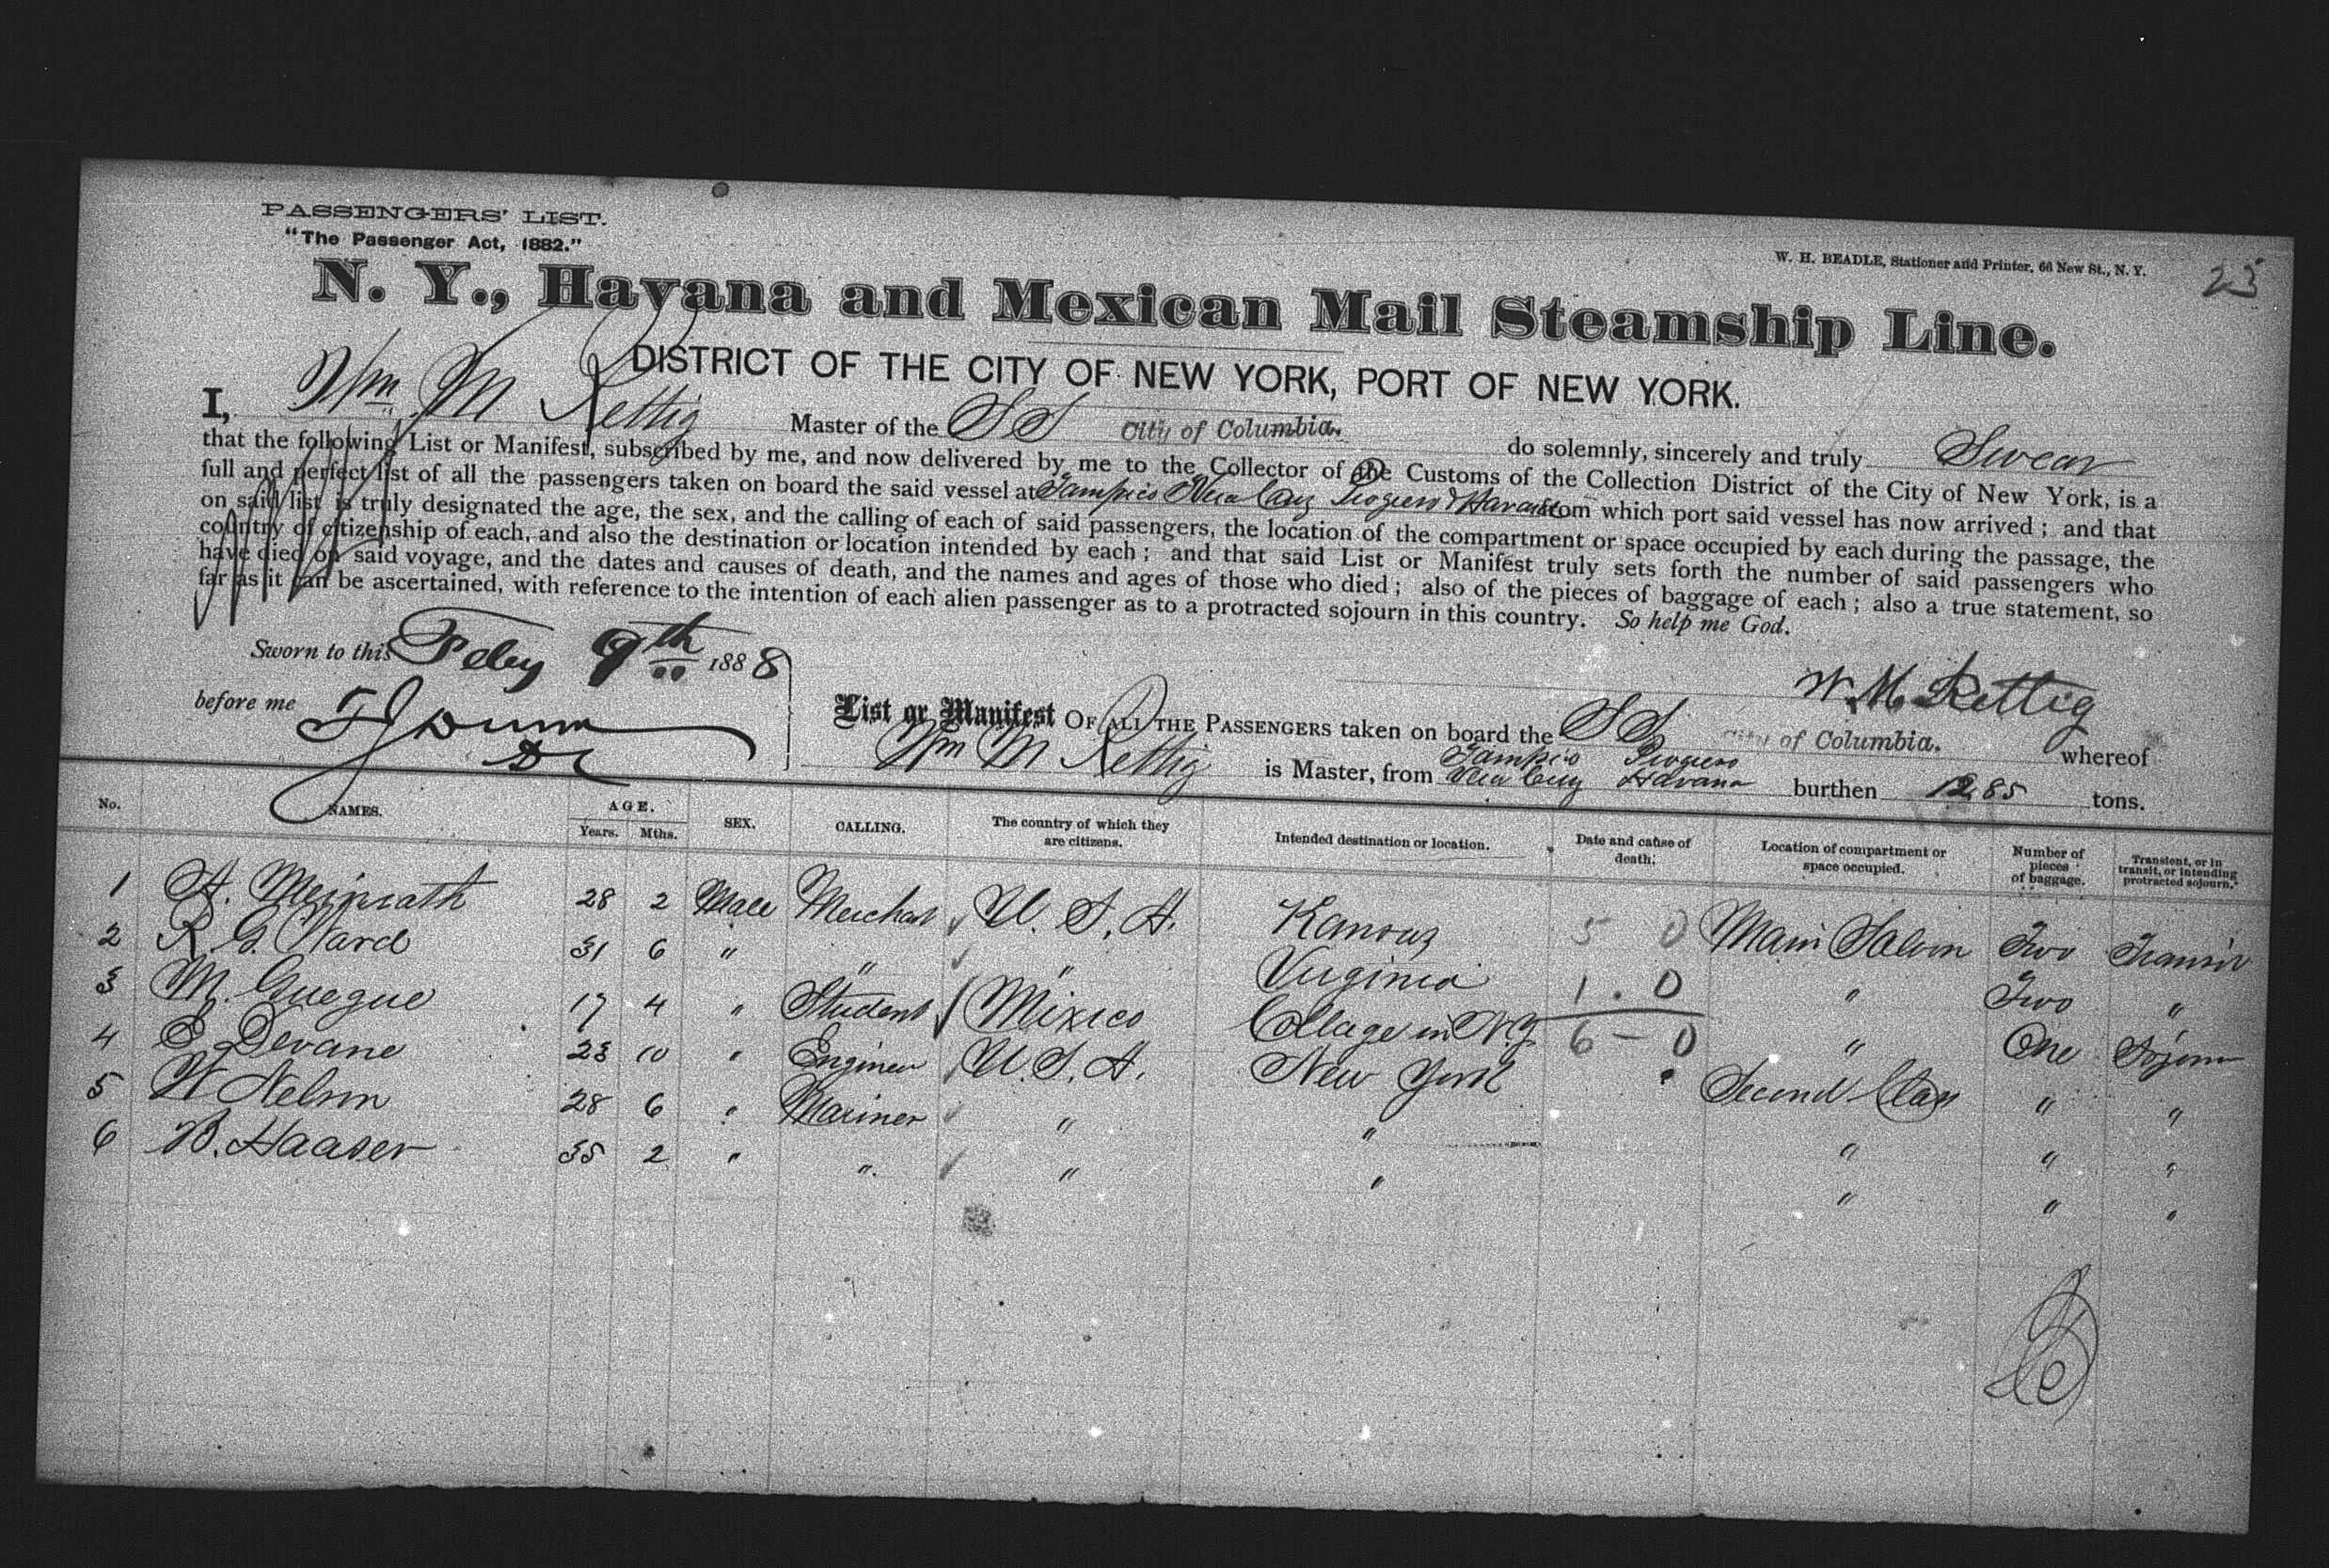 PASSENGERS' LIST.
"The Passenger Act, 1882."
W. H. BEADLE, Stationer and Printer, 66 New St., N. Y.
25
N. Y., Havana and Mexican Mail Steamship Line.
DISTRICT OF THE CITY OF NEW YORK, PORT OF NEW YORK.
I, Wm M Rettig Master of the SS City of Columbia. do solemnly, sincerely and truly Swear
that the following List or Manifest, subscribed by me, and now delivered by me to the Collector of the Customs of the Collection District of the City of New York, is a
full and perfect list of all the passengers taken on board the said vessel at Tampico Vera Cruz Progreso & Havana from which port said vessel has now arrived; and that
on said list is truly designated the age, the sex, and the calling of each of said passengers, the location of the compartment or space occupied by each during the passage, the
country of citizenship of each, and also the destination or location intended by each; and that said List or Manifest truly sets forth the number of said passengers who
have died on said voyage, and the dates and causes of death, and the names and ages of those who died; also of the pieces of baggage of each; also a true statement, so
far as it can be ascertained, with reference to the intention of each alien passenger as to a protracted sojourn in this country. So help me God.
Sworn to this Feby 9th 1888
W. M. Rettig
before me
List or Manifest OF ALL THE PASSENGERS taken on board the SS City of Columbia. whereof
Wm M Rettig is Master, from Tampico Progreso Vera Cruz Havana burthen 1285 tons.
No. NAMES. AGE. Years. Mths. SEX. CALLING. The country of which they are citizens. Intended destination or location. Date and cause of death. Location of compartment or space occupied. Number of pieces of baggage. Transient, or in transit, or intending protracted sojourn.
1 A. Meinrath 28 2 Male Merchant U. S. A. Kansas 5 0 Main Saloon Two Transit
2 R. G. Ward 31 6 " " " Virginia 1. 0 " Two "
3 M. Guegue 17 4 " Student Mexico Collage in N.Y 6 - 0 " One Sojourn
4 E Devane 23 10 " Engineer U. S. A. New York Second Class " "
5 W Nelson 28 6 " Mariner " " " " "
6 B. Haaser 35 2 " " " " " " "